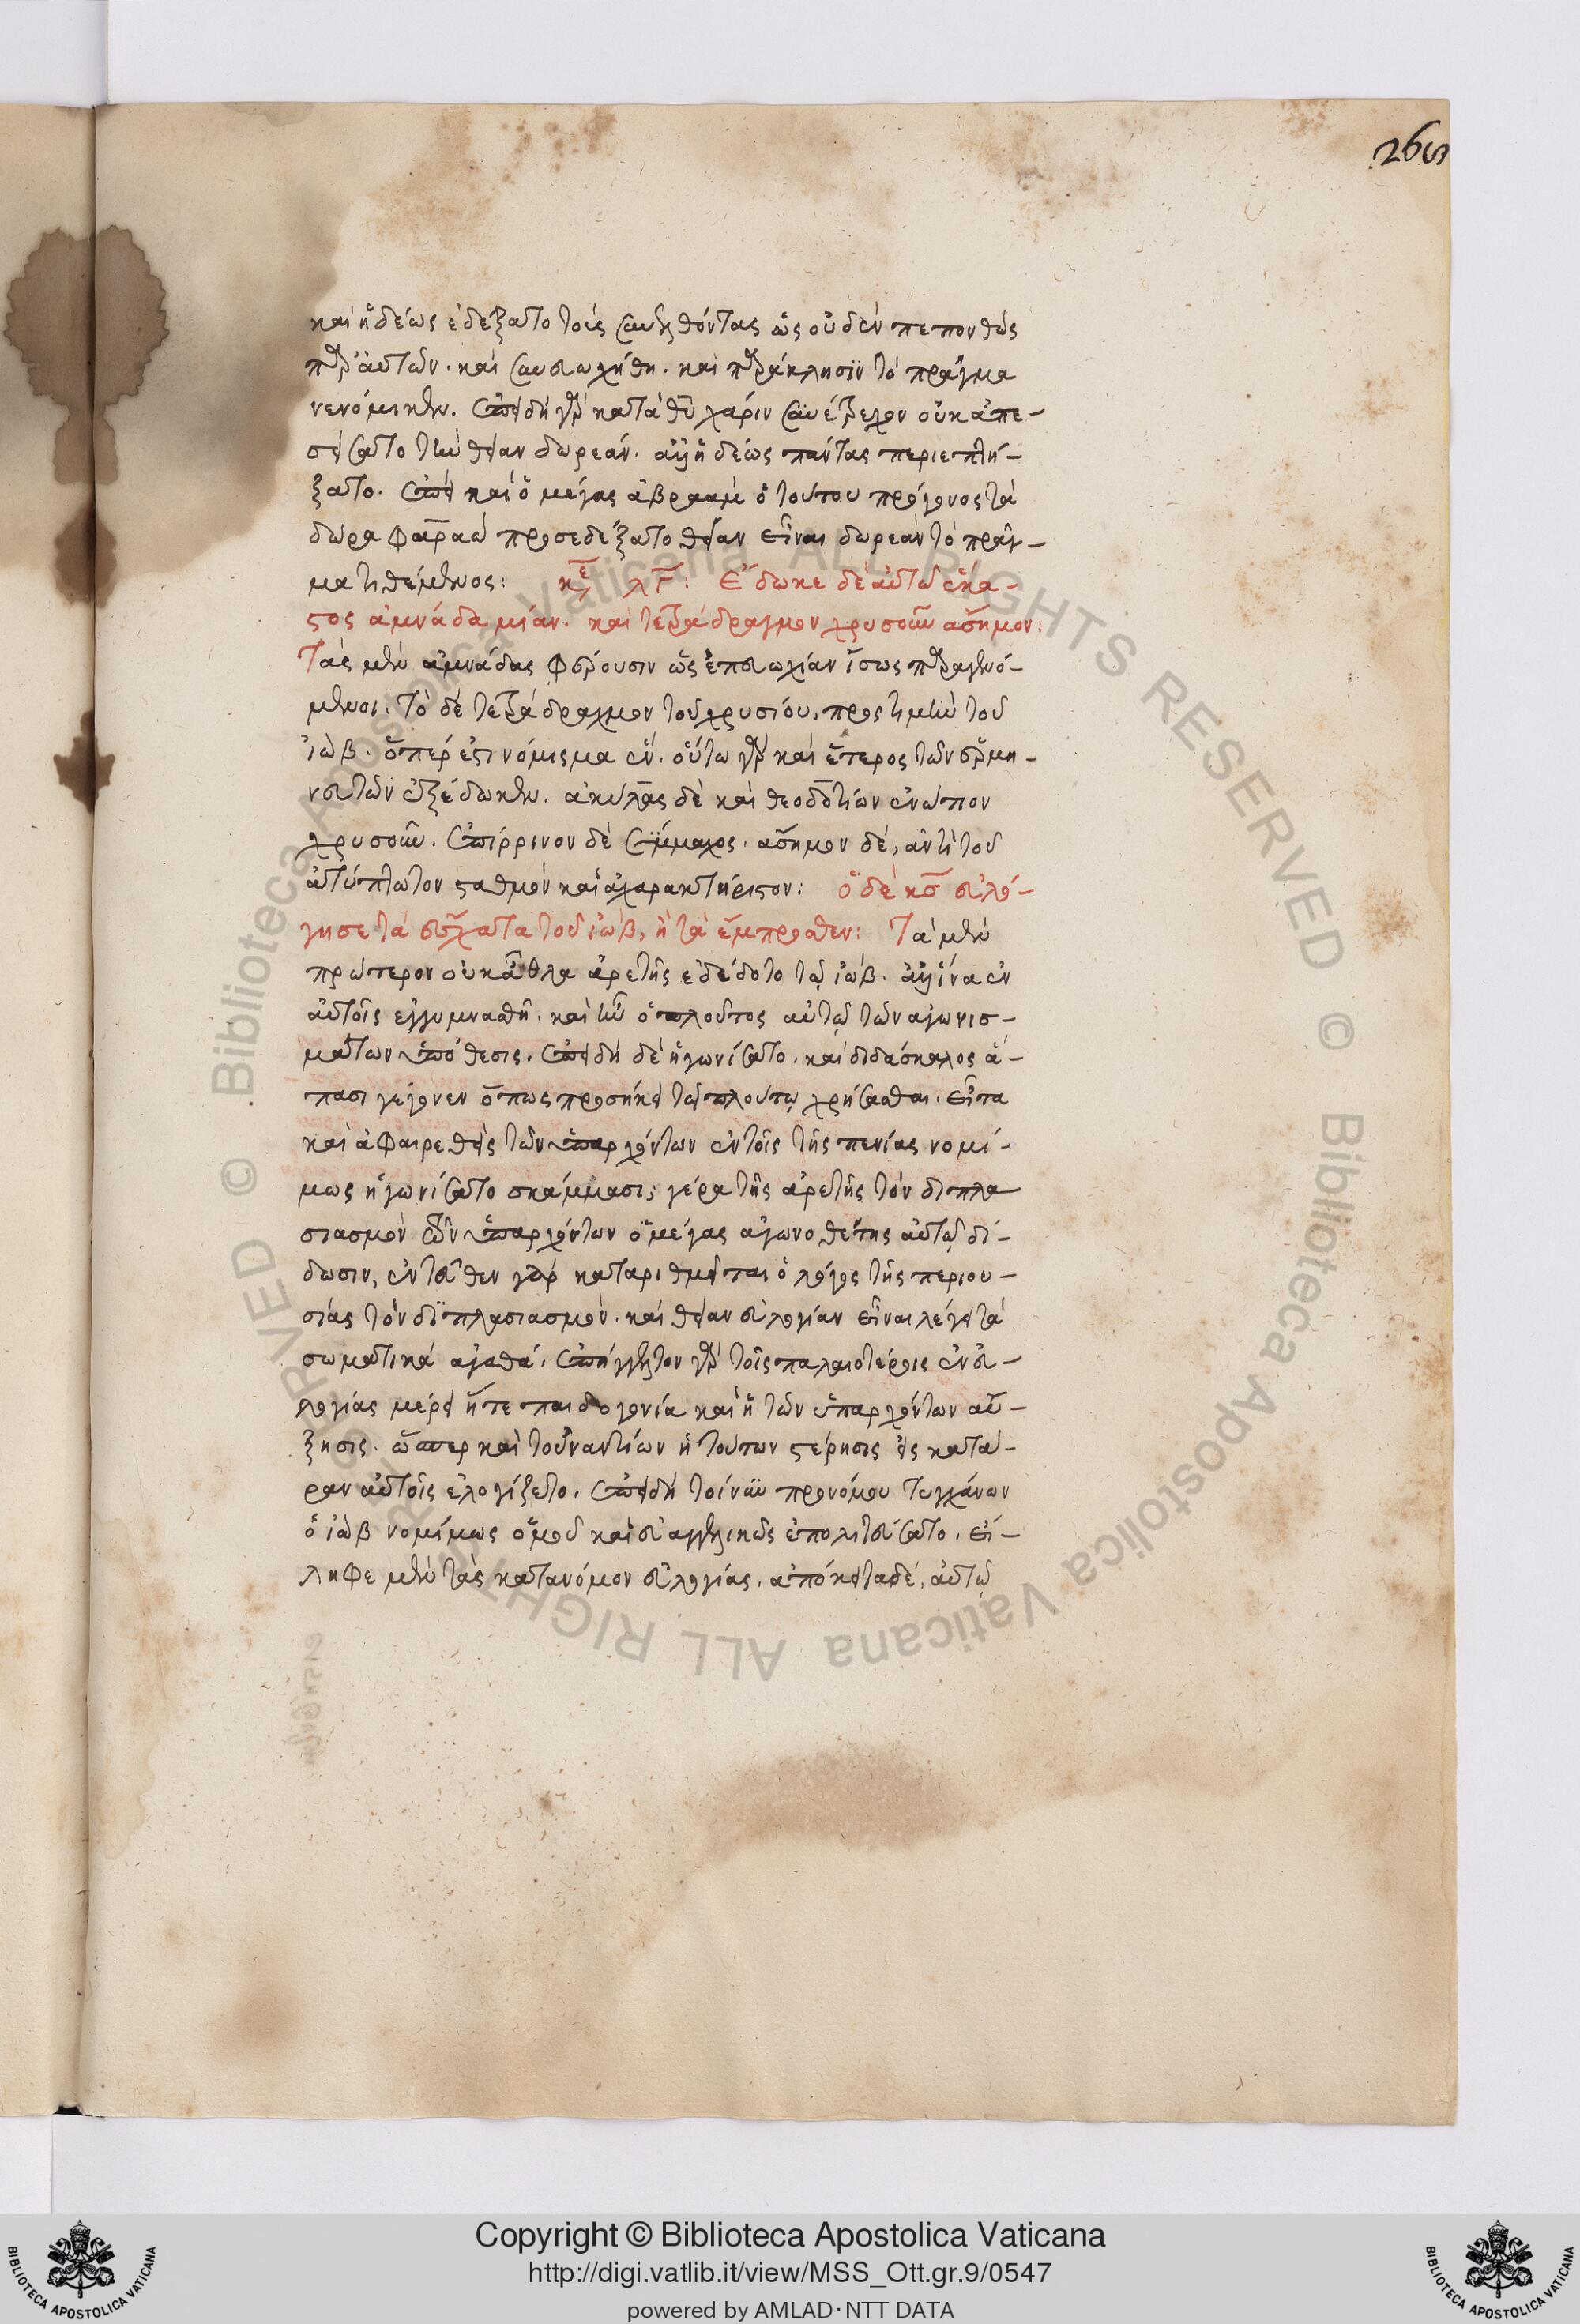 265
καὶ ἡδέως ἐδέξατο τοὺς συνελθόντας ὡς οὐδὲν πεπονθὼς
παρ' αὐτῶν. καὶ συνευωχήθη. καὶ παράκλησιν τὸ πρᾶγμα
νενόμικεν. ἐπειδὴ γὰρ κατὰ θυ χάριν συνέτρεχον οὐκ ἀπε-
σείσατο τὴν θείαν δωρεάν. ἀλλ' ἡδέως πάντας περιεπτύ-
ξατο. ἐπεὶ καὶ ὁ μέγας ἀβραὰμ ὁ τούτου πρόγονος τὰ
δῶρα φαραὼ προσεδέξατο θείαν εἶναι δωρεὰν τὸ πρᾶγ-
μα τιθέμενος: κε λγ: Ἔδωκε δὲ αὐτῶ ἕκα-
στος ἀμνάδα μίαν. καὶ τετράδραγμον χρυσοῦν ἄσημον:
Τὰς μὲν ἀμνάδας φέρουσιν ὡς ἐπ' εὐωχίαν ἴσως παραγενό-
μενοι. τὸ δὲ τετράδραχμον τοῦ χρυσίου, πρὸς τιμὴν τοῦ
ἰώβ. ὅπερ ἐστὶ νόμισμα ἕν. οὕτω γὰρ καὶ ἕτερος τῶν ἑρμη-
νευτῶν ἐξέδωκεν. ἀκύλας δὲ καὶ θεοδοτίων ἐνώτιον
χρυσοῦν. ἐπίρρινον δὲ σύμμαχος. ἄσημον δὲ, ἀντὶ τοῦ
ἀτύπωτον σταθμὸν καὶ ἀχαρακτήριστον: ὁ δὲ κς εὐλό-
γησε τὰ ἔσχατα τοῦ ἰώβ, ἢ τὰ ἔμπροσθεν: Τὰ μὲν
πρότερον οὐκ ἆθλα ἀρετῆς ἐδέδοτο τῷ ἰώβ. ἀλλ' ἵνα ἐν
αὐτοῖς ἐγγυμνασθῇ. καὶ ἦν ὁ πλοῦτος αὐτῷ τῶν ἀγωνισ-
μάτων ὑπόθεσις. ἐπειδὴ δὲ ἠγωνίσατο. καὶ διδάσκαλος ἅ-
πασι γέγονεν ὅπως προσήκει τῶ πλούτῳ χρήσασθαι. εἶτα
καὶ ἀφαιρεθεὶς τῶν ὑπαρχόντων ἐν τοῖς τῆς πενίας νομί-
μως ἠγωνίσατο σκάμμασι, γέρα τῆς ἀρετῆς τὸν διπλα
σιασμὸν τῶν ὑπαρχόντων ὁ μέγας ἀγωνοθέτης αὐτῷ δί-
δωσιν, ἐντεῦθεν γὰρ καταριθμεῖται ὁ λόγος τῆς περιου-
σίας τὸν διπλασιασμόν. καὶ θείαν εὐλογίαν εἶναι λέγει τὰ
σωματικὰ ἀγαθά. ἐπήγγελτον γὰρ τοῖς παλαιοτέροις ἐν εὐ-
λογίας μέρει ἥ τε παιδογονία καὶ ἡ τῶν ὑπαρχόντων αὔ-
ξησις. ὥσπερ καὶ τοὐναντίων ἡ τούτων στέρησις εἰς κατά-
ραν αὐτοῖς ἐλογίζετο. ἐπειδὴ τοίνυν πρὸ νόμου τυγχάνων
ὁ ἰὼβ νομίμως ὁμοῦ καὶ εὐαγγελικῶς ἐπολιτεύσατο. εἴ-
ληφε μὲν τὰς κατὰ νόμον εὐλογίας. ἀπόκειται δέ, αὐτῷ
Copyright © Biblioteca Apostolica Vaticana
http://digi.vatlib.it/view/MSS_Ott.gr.9/0547
powered by AMLAD·NTT DATA